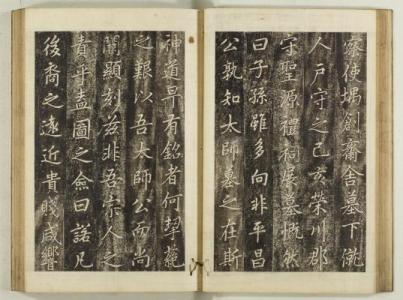 察使堣創齋舍墓下僦
人戶守之己亥榮川郡
守聖源禮祠展墓慨然
曰子孫雖多向非平昌
公孰知太師墓之在斯
神道有銘者何
之艱以吾太師公而尚
闕顯刻茲非吾宗人之
責乎盍圖之僉曰諾凡
後裔之遠近貴賤咸響